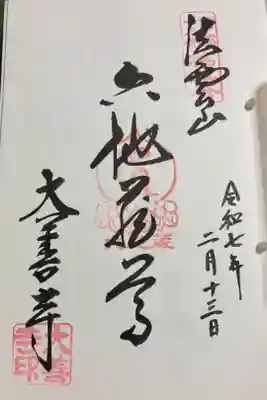 法雲山
令和七年
二月十三日
六地蔵尊
大善寺
大善寺印